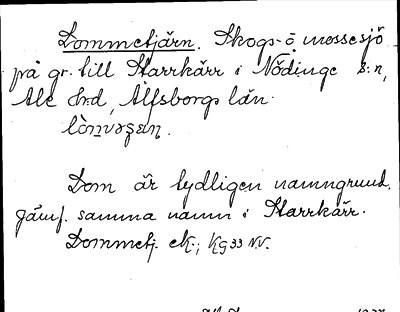 Dommetjärn. Skogs- o mossesjö
på gr. till Starrkärr i Nödinge s:n,
Ale hrd, Älfsborgs län.
Dom är tydligen namngrund.
Jämf. samma namn i Starrkärr.
Dommetj. ek.; Kg 33 N.V.